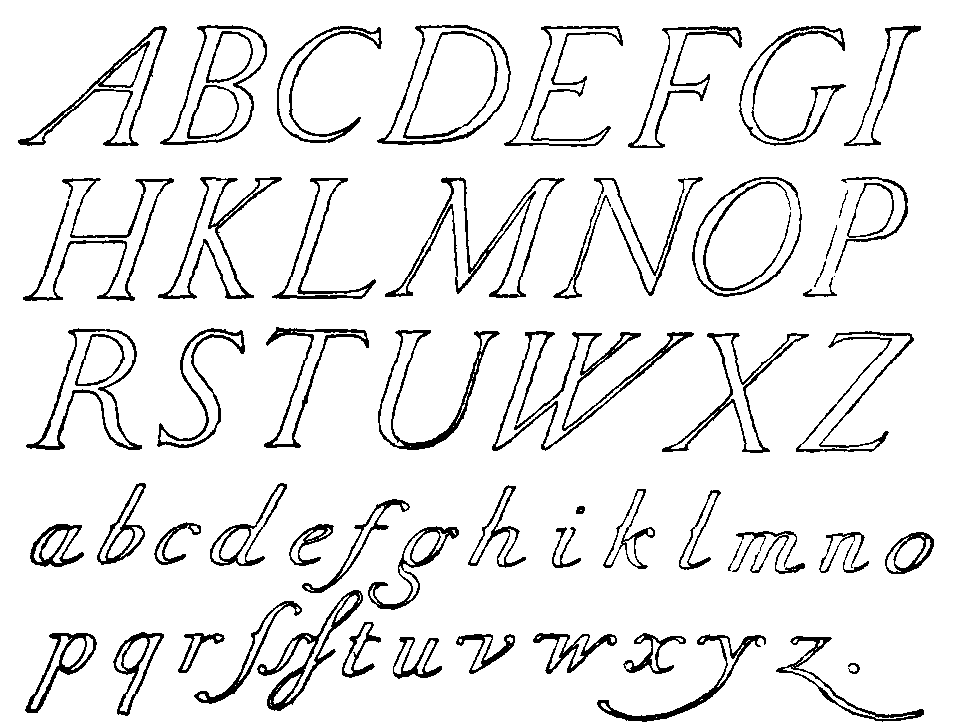 A B C D E F G I
H K L M N O P
R S T U W X Z
a b c d e f g h i k l m n o
p q r ſ s t u v w x y z.